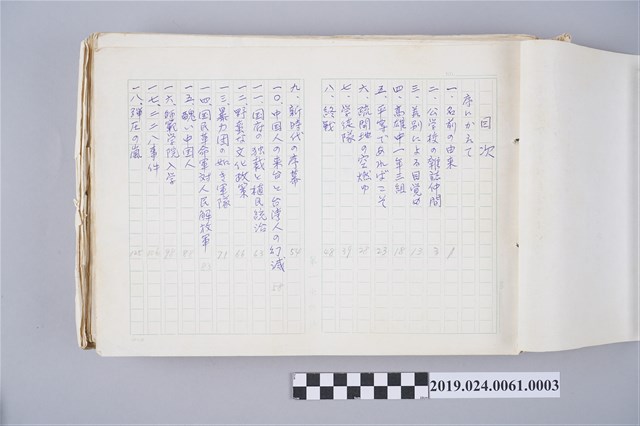 目次
序にかえて
一、名前の由来 1
二、公学校の雑誌仲間 3
三、差別による目覚め 13
四、高雄中一年三組 18
五、平凡であればこそ 23
六、疏開地の空燃ゆ 28
七、学徒隊 39
八、終戦 48
九、新時代の序幕 54
一〇、中国人の来台と台湾人の幻滅 58
一一、国府の独裁と植民統治 63
一二、野蛮な文化政策 66
一三、暴力団の如き軍隊 78
一四、国民革命軍対人民解放軍 83
一五、醜い中国人 85
一六、師範学院入学
一七、二二八事件
一八、弾圧の嵐
2019.024.0061.0003